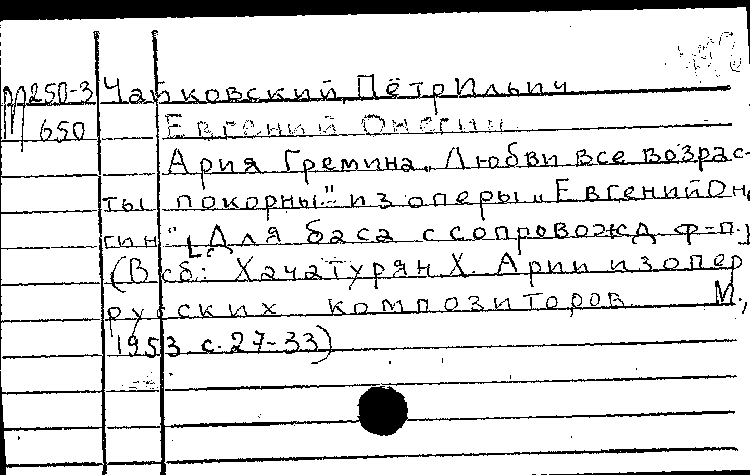 М250-3 Чайковский, Пётр Ильич
650 Евгений Онегин
Ария Гремина „Любви все возрас-
ты покорны" из оперы „Евгений Оне
гин" [Для баса с сопровожд. ф=п.]
(В сб: Хачатурян Х. Арии из опер
русских композиторов М.,
1953 с.27-33)